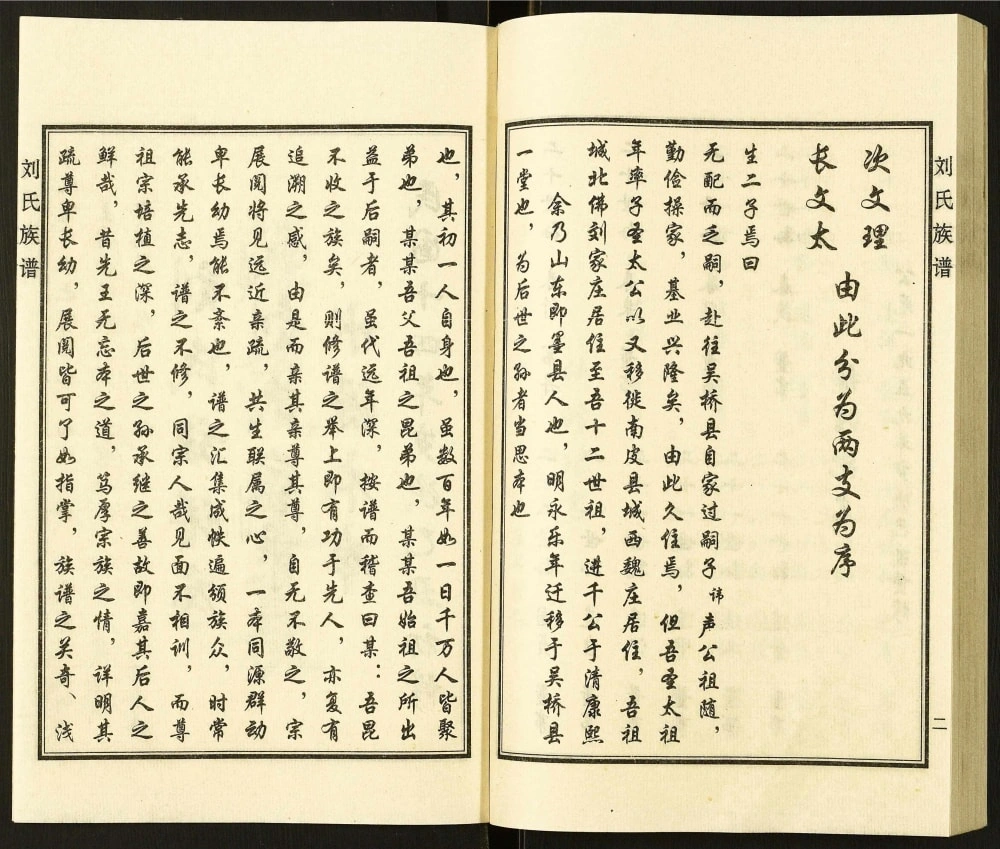 刘氏族谱
二
次文理
长文太
由此分为两支为序
生二子焉曰
无配而乏嗣，赴往吴桥县自家过嗣子讳声公祖随，
勤俭操家，基业兴隆矣，由此久住焉，但吾圣太祖
年率子圣太公以又移徙南皮县城西魏庄居住，吾祖
城北佛刘家庄居住至吾十二世祖，进千公于清康熙
余乃山东即墨县人也，明永乐年迁移于吴桥县
一堂也，为后世之孙者当思本也
也，其初一人自身也，虽数百年如一日千万人皆聚
弟也，某某吾父吾祖之昆弟也，某某吾始祖之所出
益于后嗣者，虽代远年深，按谱而稽查曰某：吾昆
不收之族矣，则修谱之举上即有功于先人，亦复有
追溯之感，由是而亲其亲尊其尊，自无不敬之，宗
展阅将见远近亲疏，共生联属之心，一本同源群动
卑长幼焉能不紊也，谱之汇集成帙遍颁族众，时常
能承先志，谱之不修，同宗人哉见面不相训，而尊
祖宗培植之深，后世之孙承继之善故即嘉其后人之
鲜哉，昔先王无忘本之道，笃厚宗族之情，详明其
疏尊卑长幼，展阅皆可了如指掌，族谱之关奇、浅
刘氏族谱